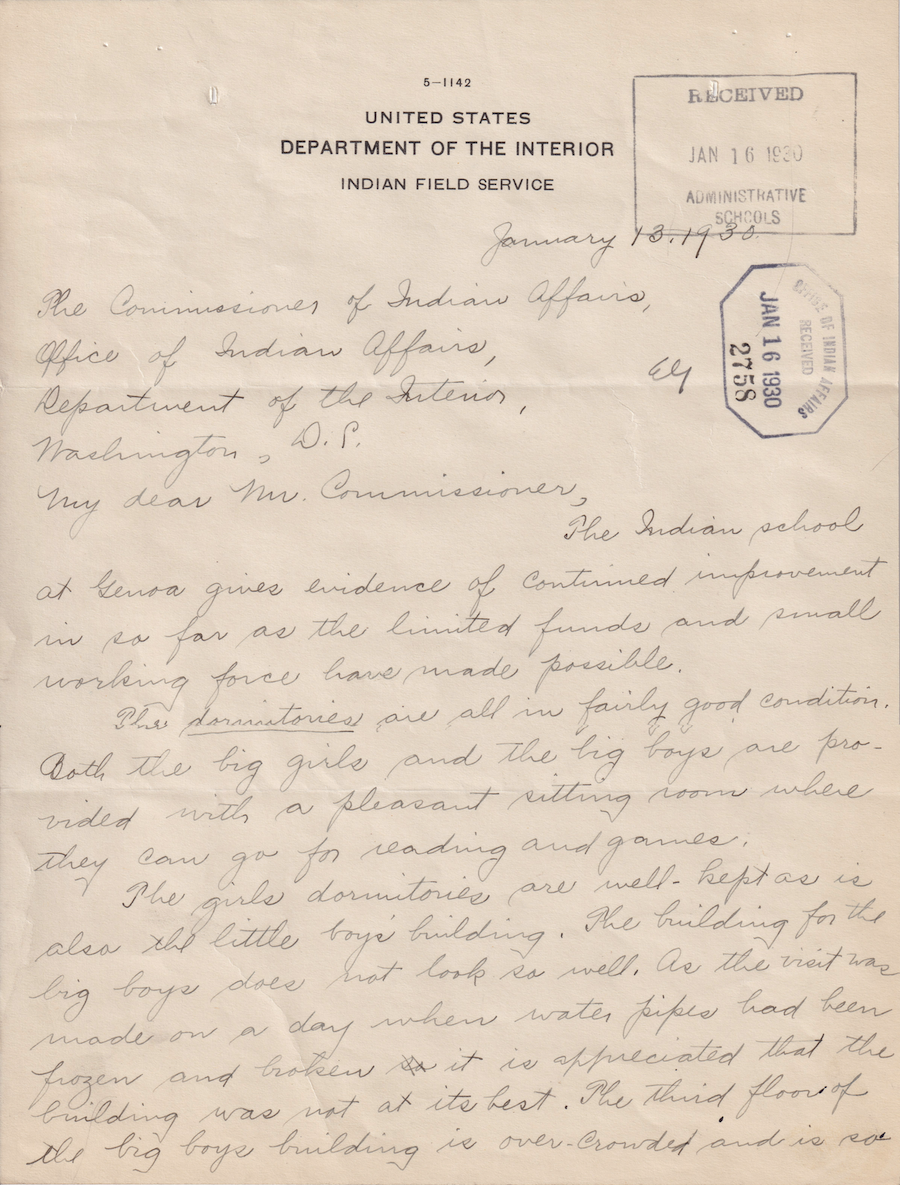 5—1142
UNITED STATES
DEPARTMENT OF THE INTERIOR
INDIAN FIELD SERVICE
RECEIVED
JAN 16 1930
ADMINISTRATIVE
SCHOOLS
January 13, 1930.
OFFICE OF INDIAN AFFAIRS
RECEIVED
JAN 16 1930
2758
The Commissioner of Indian Affairs,
Office of Indian Affairs,
Department of the Interior,
Washington, D.C.
My dear Mr. Commissioner,
The Indian school
at Genoa gives evidence of continued improvement
in so far as the limited funds and small
working force have made possible.
The dormitories are all in fairly good condition.
Both the big girls and the big boys are pro-
vided with a pleasant sitting room where
they can go for reading and games.
The girls dormitories are well-kept as is
also the little boy's building. The building for the
big boys does not look so well. As the visit was
made on a day when water pipes had been
frozen and broken it is appreciated that the
building was not at its best. The third floor of
the big boys building is over-crowded and is so